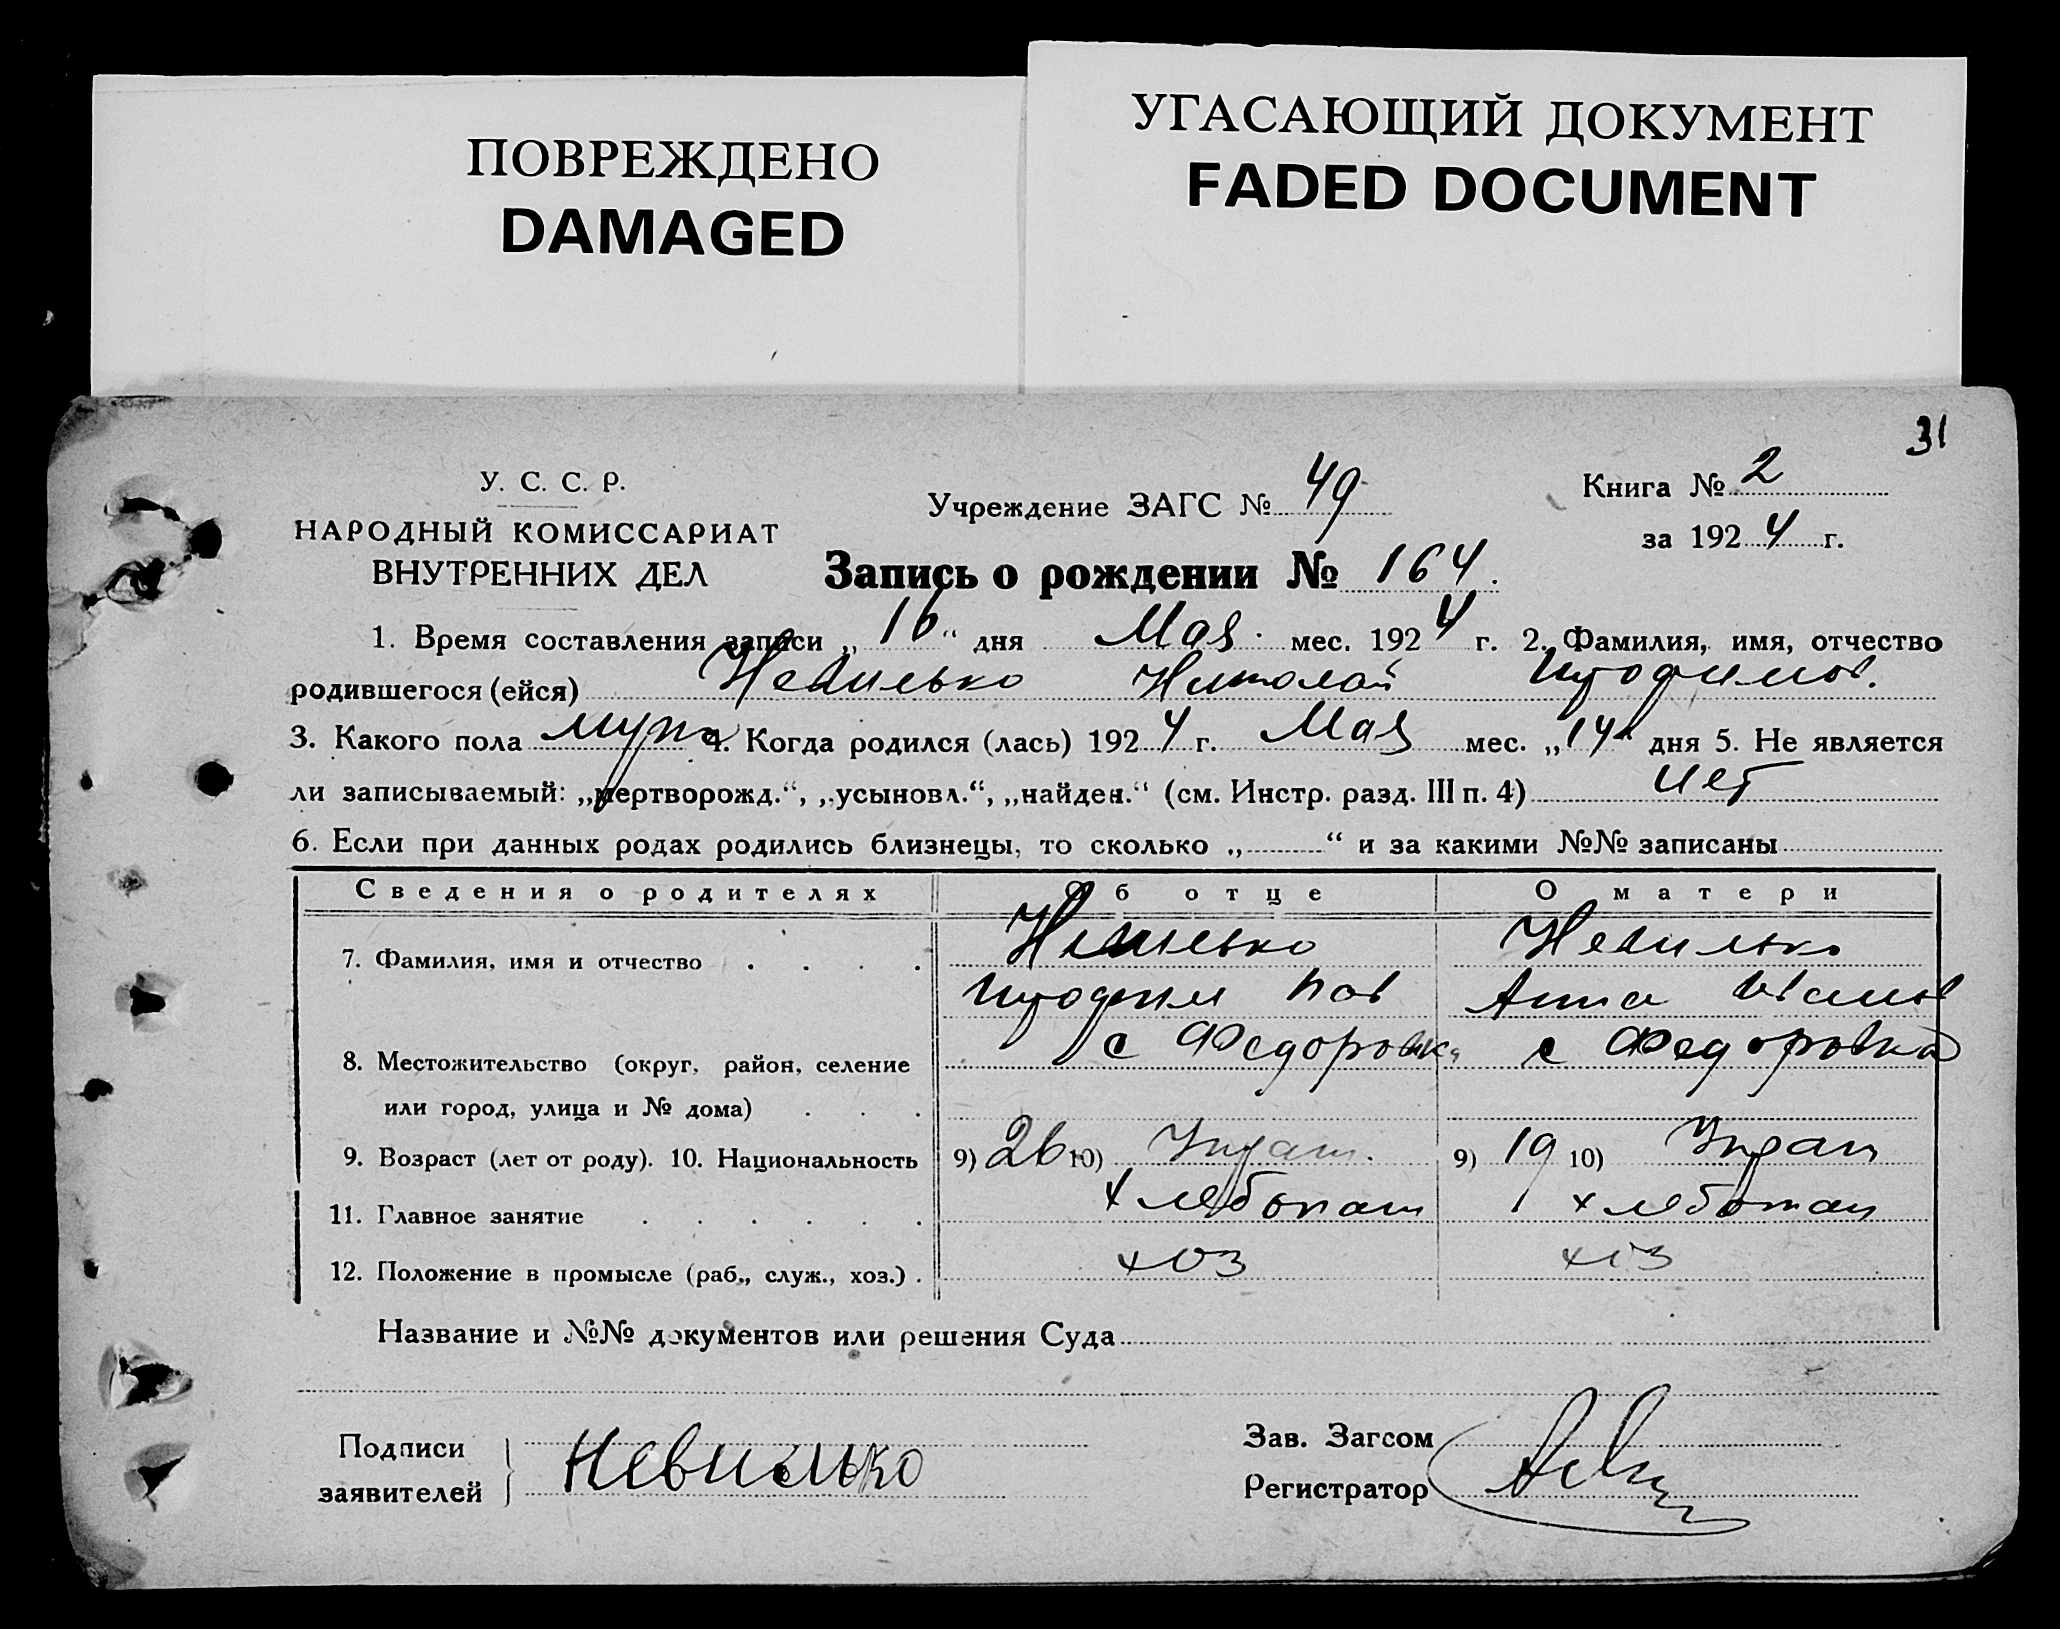 ПОВРЕЖДЕНО
DAMAGED
УГАСАЮЩИЙ ДОКУМЕНТ
FADED DOCUMENT
31
У. С. С. Р.
НАРОДНЫЙ КОМИССАРИАТ
ВНУТРЕННИХ ДЕЛ
Учреждение ЗАГС № 49
Книга № 2
за 1924 г.
Запись о рождении № 164.
1. Время составления записи „16“ дня Мая мес. 1924 г. 2. Фамилия, имя, отчество
родившегося (ейся) Невилько Николай
3. Какого пола муж 4. Когда родился (лась) 1924 г. Мая мес. „14“ дня 5. Не является
ли записываемый: „мертворожд.“, „усыновл.“, „найден.“ (см. Инстр. разд. III п. 4) нет
6. Если при данных родах родились близнецы, то сколько „ “ и за какими №№ записаны
Сведения о родителях Об отце О матери
7. Фамилия, имя и отчество . . . . Невилько Невилько
Анна Иванов
8. Местожительство (округ, район, селение с Федоровка с Федоровка
или город, улица и № дома) . . .
9. Возраст (лет от роду). 10. Национальность 9) 26 10) 9) 19 10)
11. Главное занятие . . . . . . хлебопаш хлебопаш
12. Положение в промысле (раб., служ., хоз.) . хоз хоз
Название и №№ документов или решения Суда
Подписи
заявителей
Невилько
Зав. Загсом
Регистратор